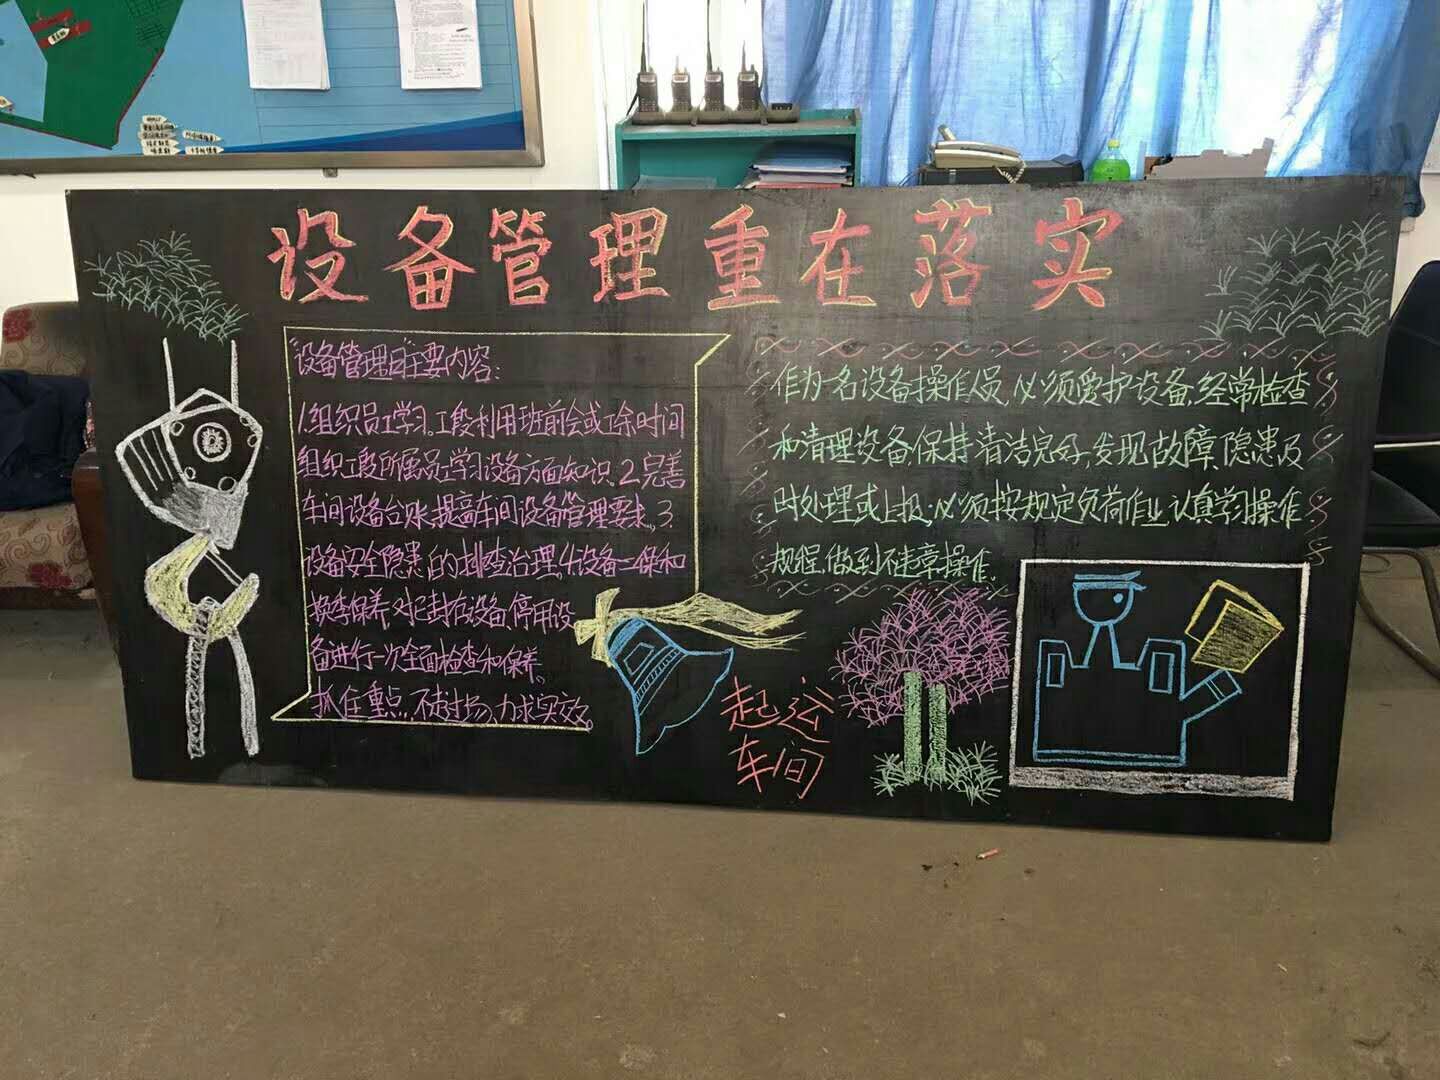 设备管理重在落实
"设备管理日"主要内容:
1.组织员工学习。工段利用班前会或工余时间
组织工段所属员工学习设备方面知识。2.完善
车间设备台账,提高车间设备管理要求。3.
设备安全隐患的排查治理。4.设备一保和
换季保养。对已封存设备、停用设
备进行一次全面检查和保养。
抓住重点,不走过场、力求实效。
作为一名设备操作人员,必须爱护设备,经常检查
和清理设备,保持清洁完好,发现故障、隐患及
时处理或上报,必须按规定负荷作业,认真学习操作
规程,做到不违章操作。
起运
车间